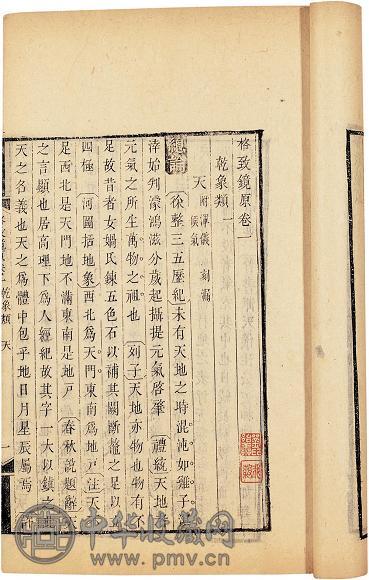 格致鏡原卷一
乾象類一
天 附渾儀 刻漏 候氣
總論 徐整三五歷紀 未有天地之時混沌如雞子
涬始判濛鴻滋分歲起攝提元氣啓肇 禮統 天地
元氣之所生萬物之祖也 列子 天地亦物也物有不
足故昔者女媧氏鍊五色石以補其闕斷鼇之足以
四極 河圖括地象 西北為天門東南為地戶注天
足西北是天門地不滿東南是地戶 春秋說題辭
之言顯也居高理下為人經紀故其字一大以鎮之
天之名義也天之為體中包乎地日月星辰屬焉
乾象類 天 一
中华收藏网
www.pmv.cn